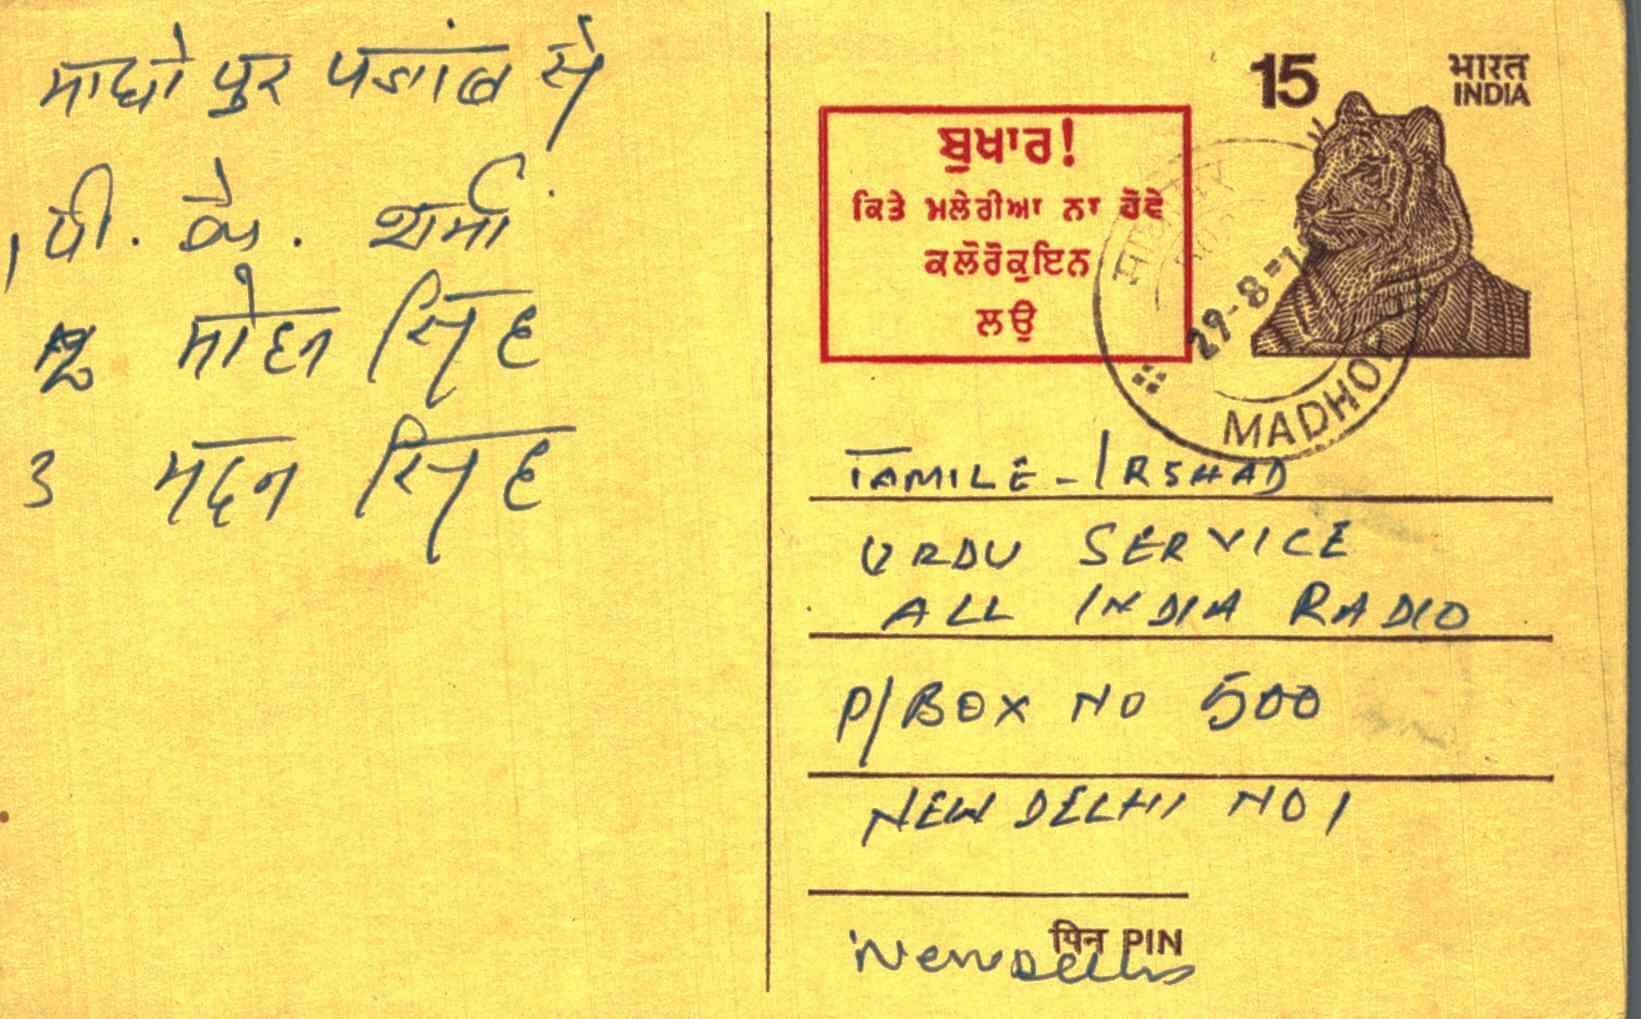 माधोपुर पंजाब से
1, पी. के. शर्मा
2 मोहन सिंह
3 मदन सिंह
15
भारत
INDIA
ਬੁਖਾਰ!
ਕਿਤੇ ਮਲੇਰੀਆ ਨਾ ਹੋਵੇ
ਕਲੋਰੋਕੁਇਨ
ਲਉ
29-8-
MADHO
TAMILE-IRSHAD
URDU SERVICE
ALL INDIA RADIO
P/BOX NO 500
NEW DELHI NO 1
पिन PIN
New Delhi